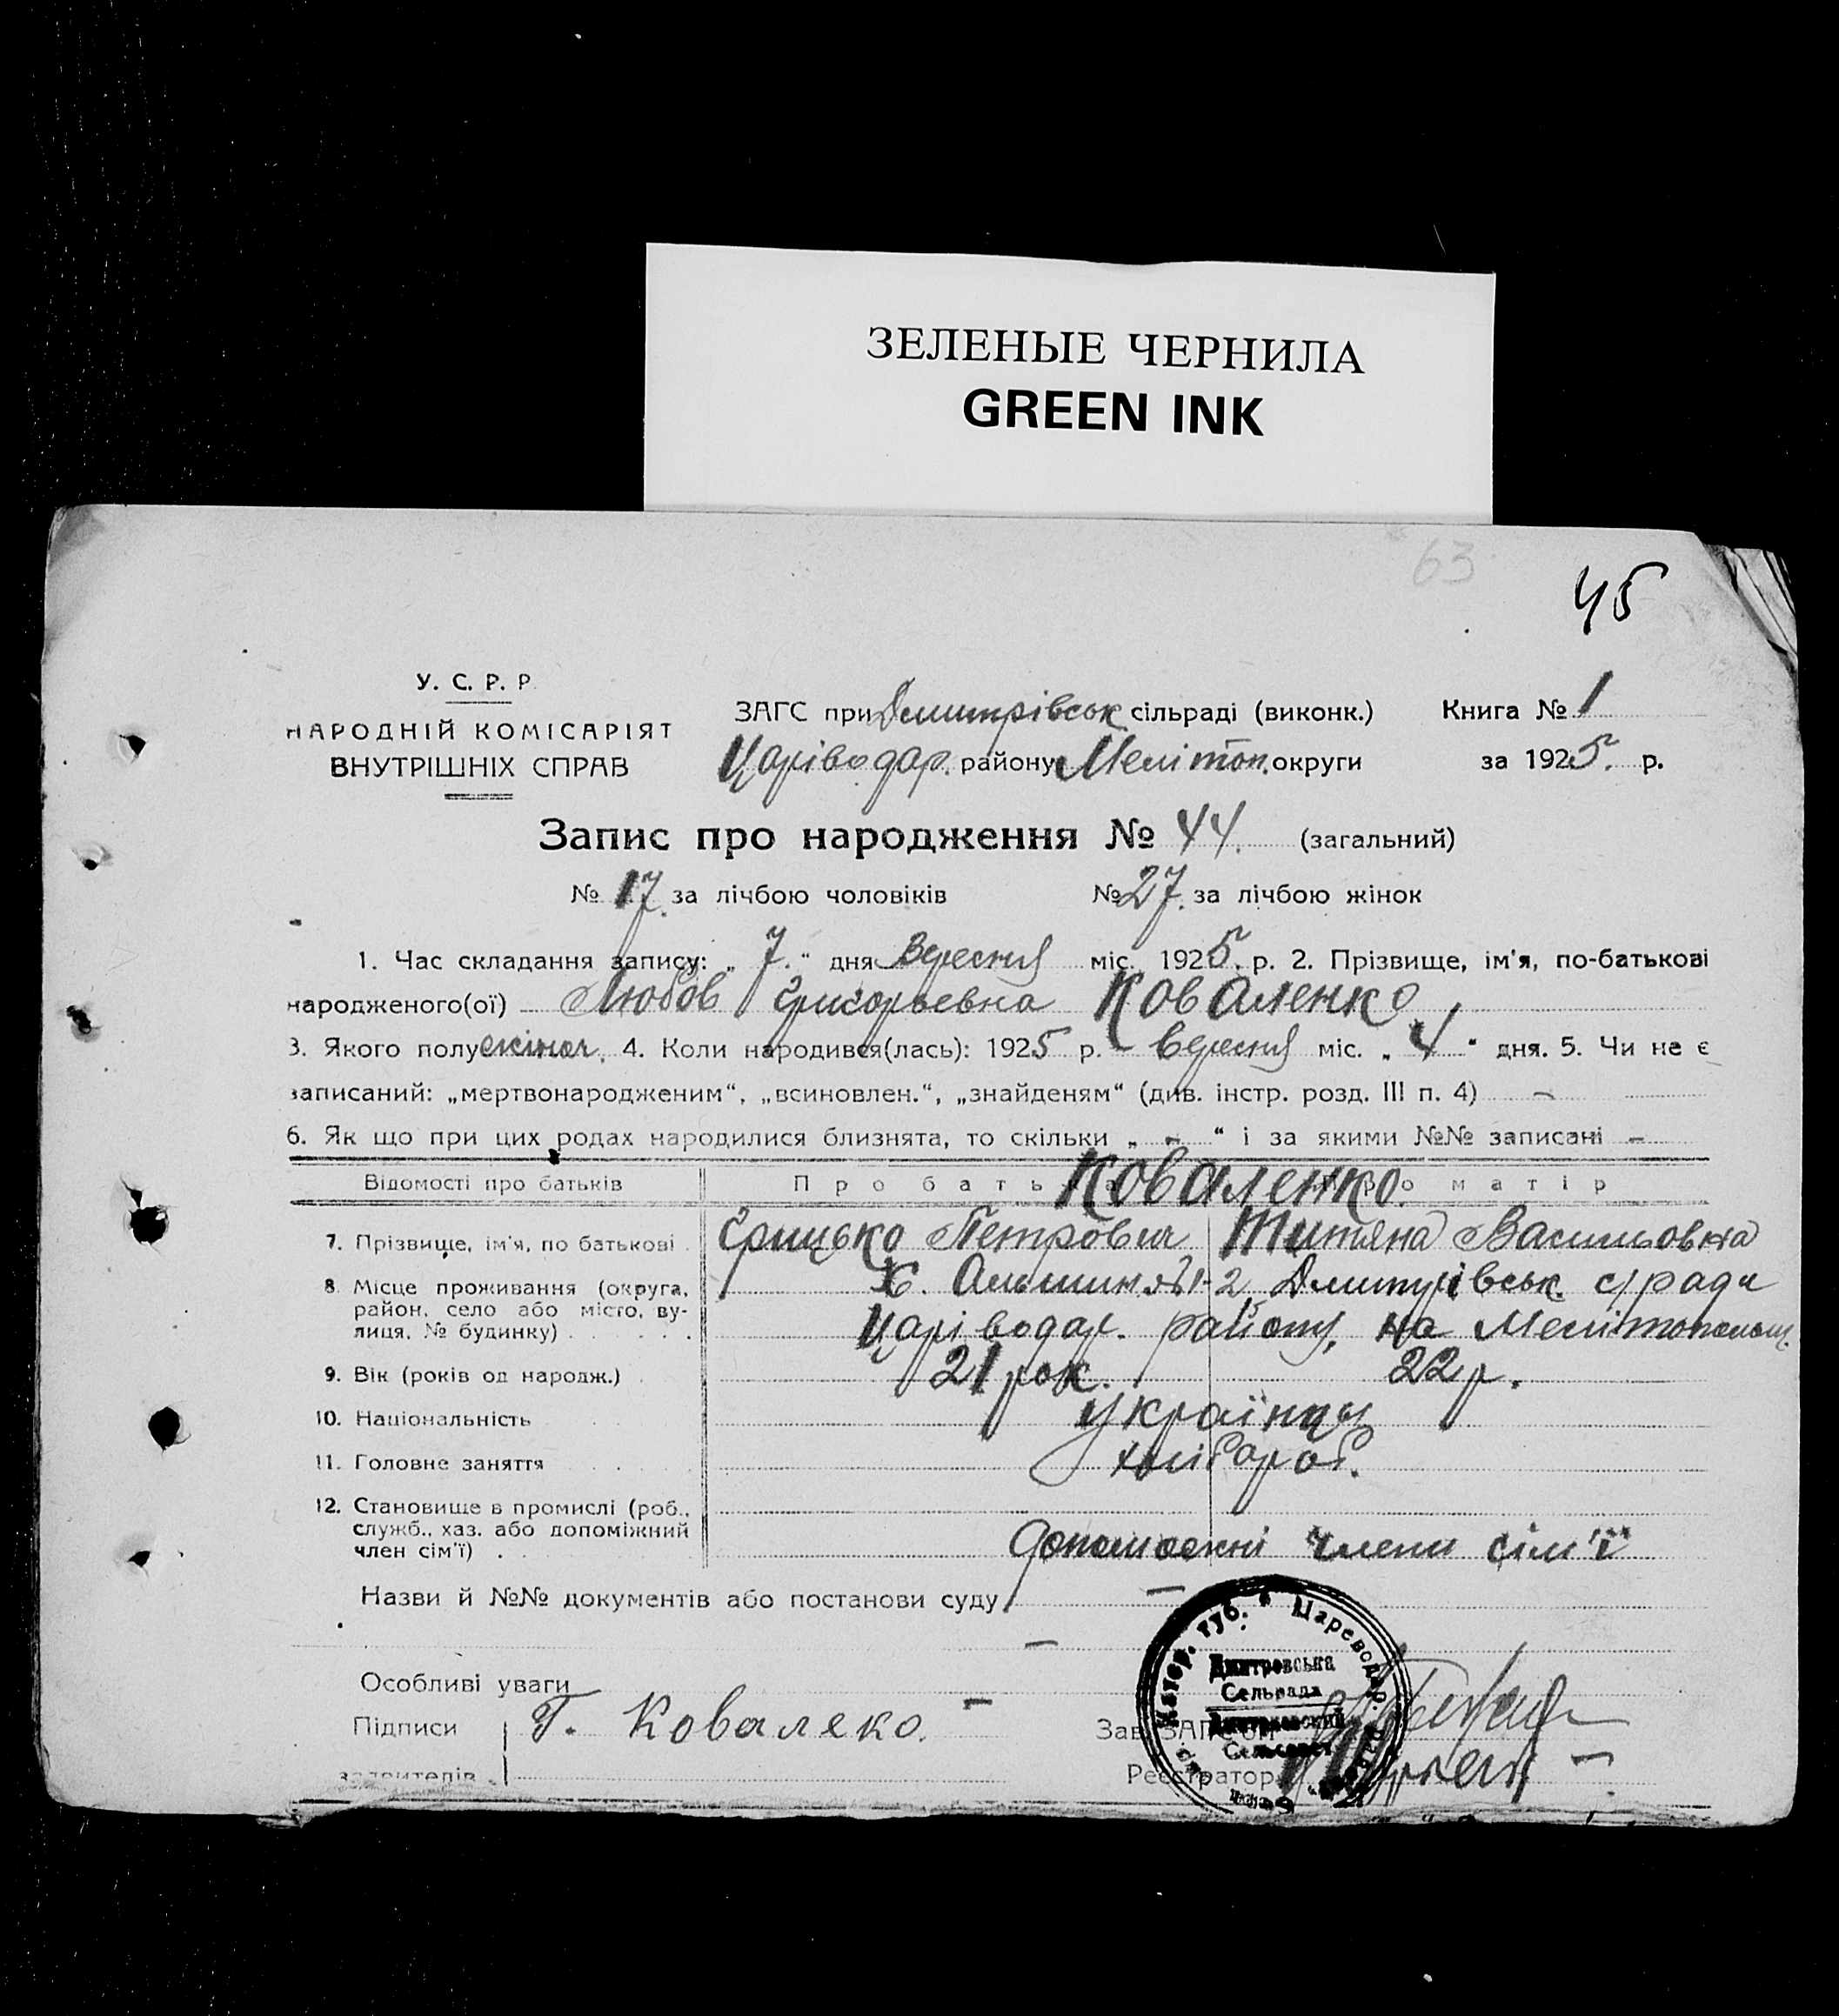 ЗЕЛЕНЫЕ ЧЕРНИЛА
GREEN INK
63
45
У. С. Р. Р
НАРОДНІЙ КОМІСАРІЯТ
ВНУТРІШНІХ СПРАВ
ЗАГС при Дмитрівськ сільраді (виконк.)
Царіводар. району Мелітоп. округи
Книга № 1
за 1925. р.
Запис про народження № 44. (загальний)
№ 17. за лічбою чоловіків № 27. за лічбою жінок
1. Час складання запису: „ 7. “ дня Вересня міс. 1925. р. 2. Прізвище, ім'я, по-батькові
народженого(ої) Любов Григорьевна Коваленко
3. Якого полу жіноч. 4. Коли народився(лась): 1925 р. вересня міс. „ 4 “ дня. 5. Чи не є
записаний: „мертвонародженим“, „всиновлен.“, „знайденям“ (див. інстр. розд. III п. 4) –
6. Як що при цих родах народилися близнята, то скільки „ - “ і за якими №№ записані –
Відомості про батьків Про бать Коваленко. о матір
7. Прізвище, ім'я, по батькові Грицько Петрович Титяна Васильовна
8. Місце проживання (округа, район, село або місто, вулиця, № будинку)
Х. 2 Дмитрівськ. с/ради
Царіводар. району, на Мелітопольщ.
9. Вік (років од народж.) 21 рок. 22 р.
10. Національність українцы
11. Головне заняття хлібороб.
12. Становище в промислі (роб., служб., хаз. або допоміжний член сім'ї)
допоможні члени сім'ї
Назви й №№ документів або постанови суду –
–
Особливі уваги –
Підписи Г. Ковалеко.
заявителів
Зав. ЗАГСом
Реєстратор
Катер. губ. * Цареводар.
Дмитровська
Сельрада
Дмитровский
Сельсовет